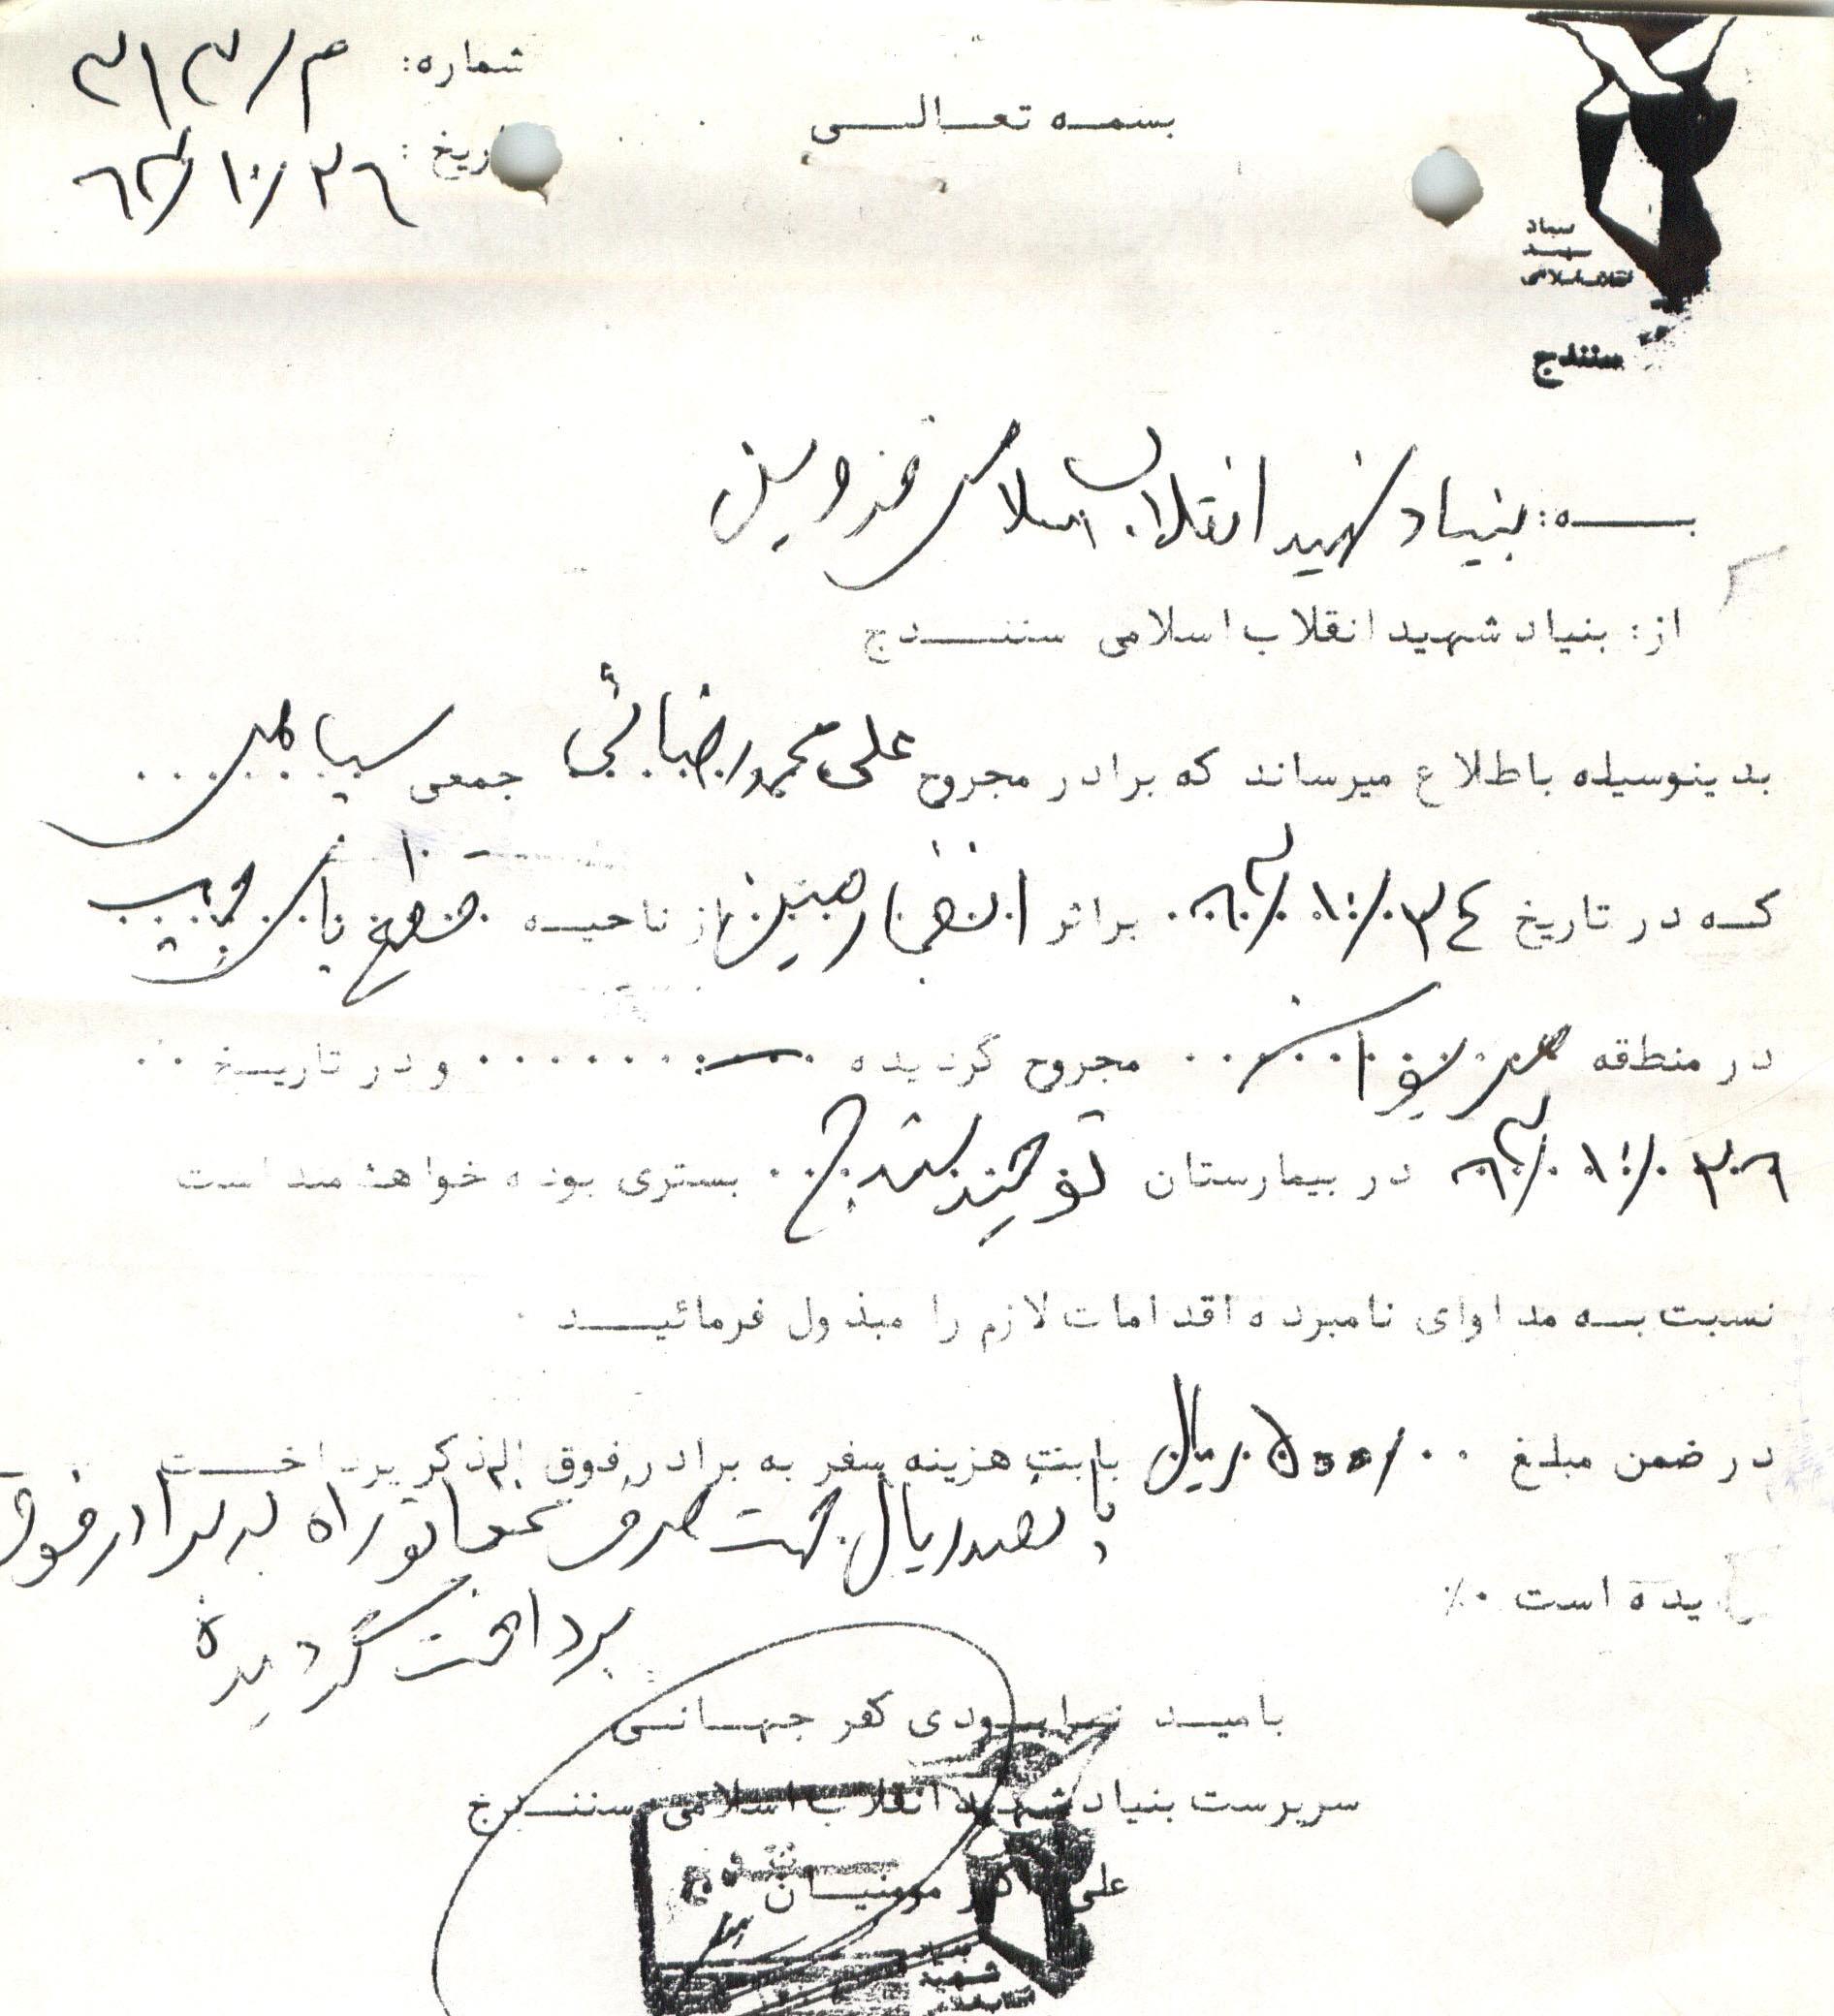 بسمه تعالی
شماره: ۳۱۳/م
تاریخ: ۶۳/۱۰/۲۶
بنیاد
شهید
انقلاب اسلامی
سنندج
به: بنیاد شهید انقلاب اسلامی قزوین
از: بنیاد شهید انقلاب اسلامی سنندج
بدینوسیله باطلاع میرساند که برادر مجروح علی محمد رضائی جمعی سپاه
که در تاریخ ۶۳/۱۰/۲۴ براثر انفجار مین از ناحیه قطع پای چپ
در منطقه مریوان مجروح گردیده و در تاریخ
۶۳/۱۰/۲۶ در بیمارستان توحید سنندج بستری بوده خواهشمند است
نسبت به مداوای نامبرده اقدامات لازم را مبذول فرمائید
در ضمن مبلغ ۵۰۰/۰۰ ریال بابت هزینه سفر به برادر فوق الذکر پرداخت
پانصد ریال جهت صرف راه به برادر فوق
یده است ٪
پرداخت گردیده
بامید نابودی کفر جهانی
سرپرست بنیاد شهید انقلاب اسلامی سنندج
علی اکبر مومنیان
بنیاد
شهید
انقلاب اسلامی